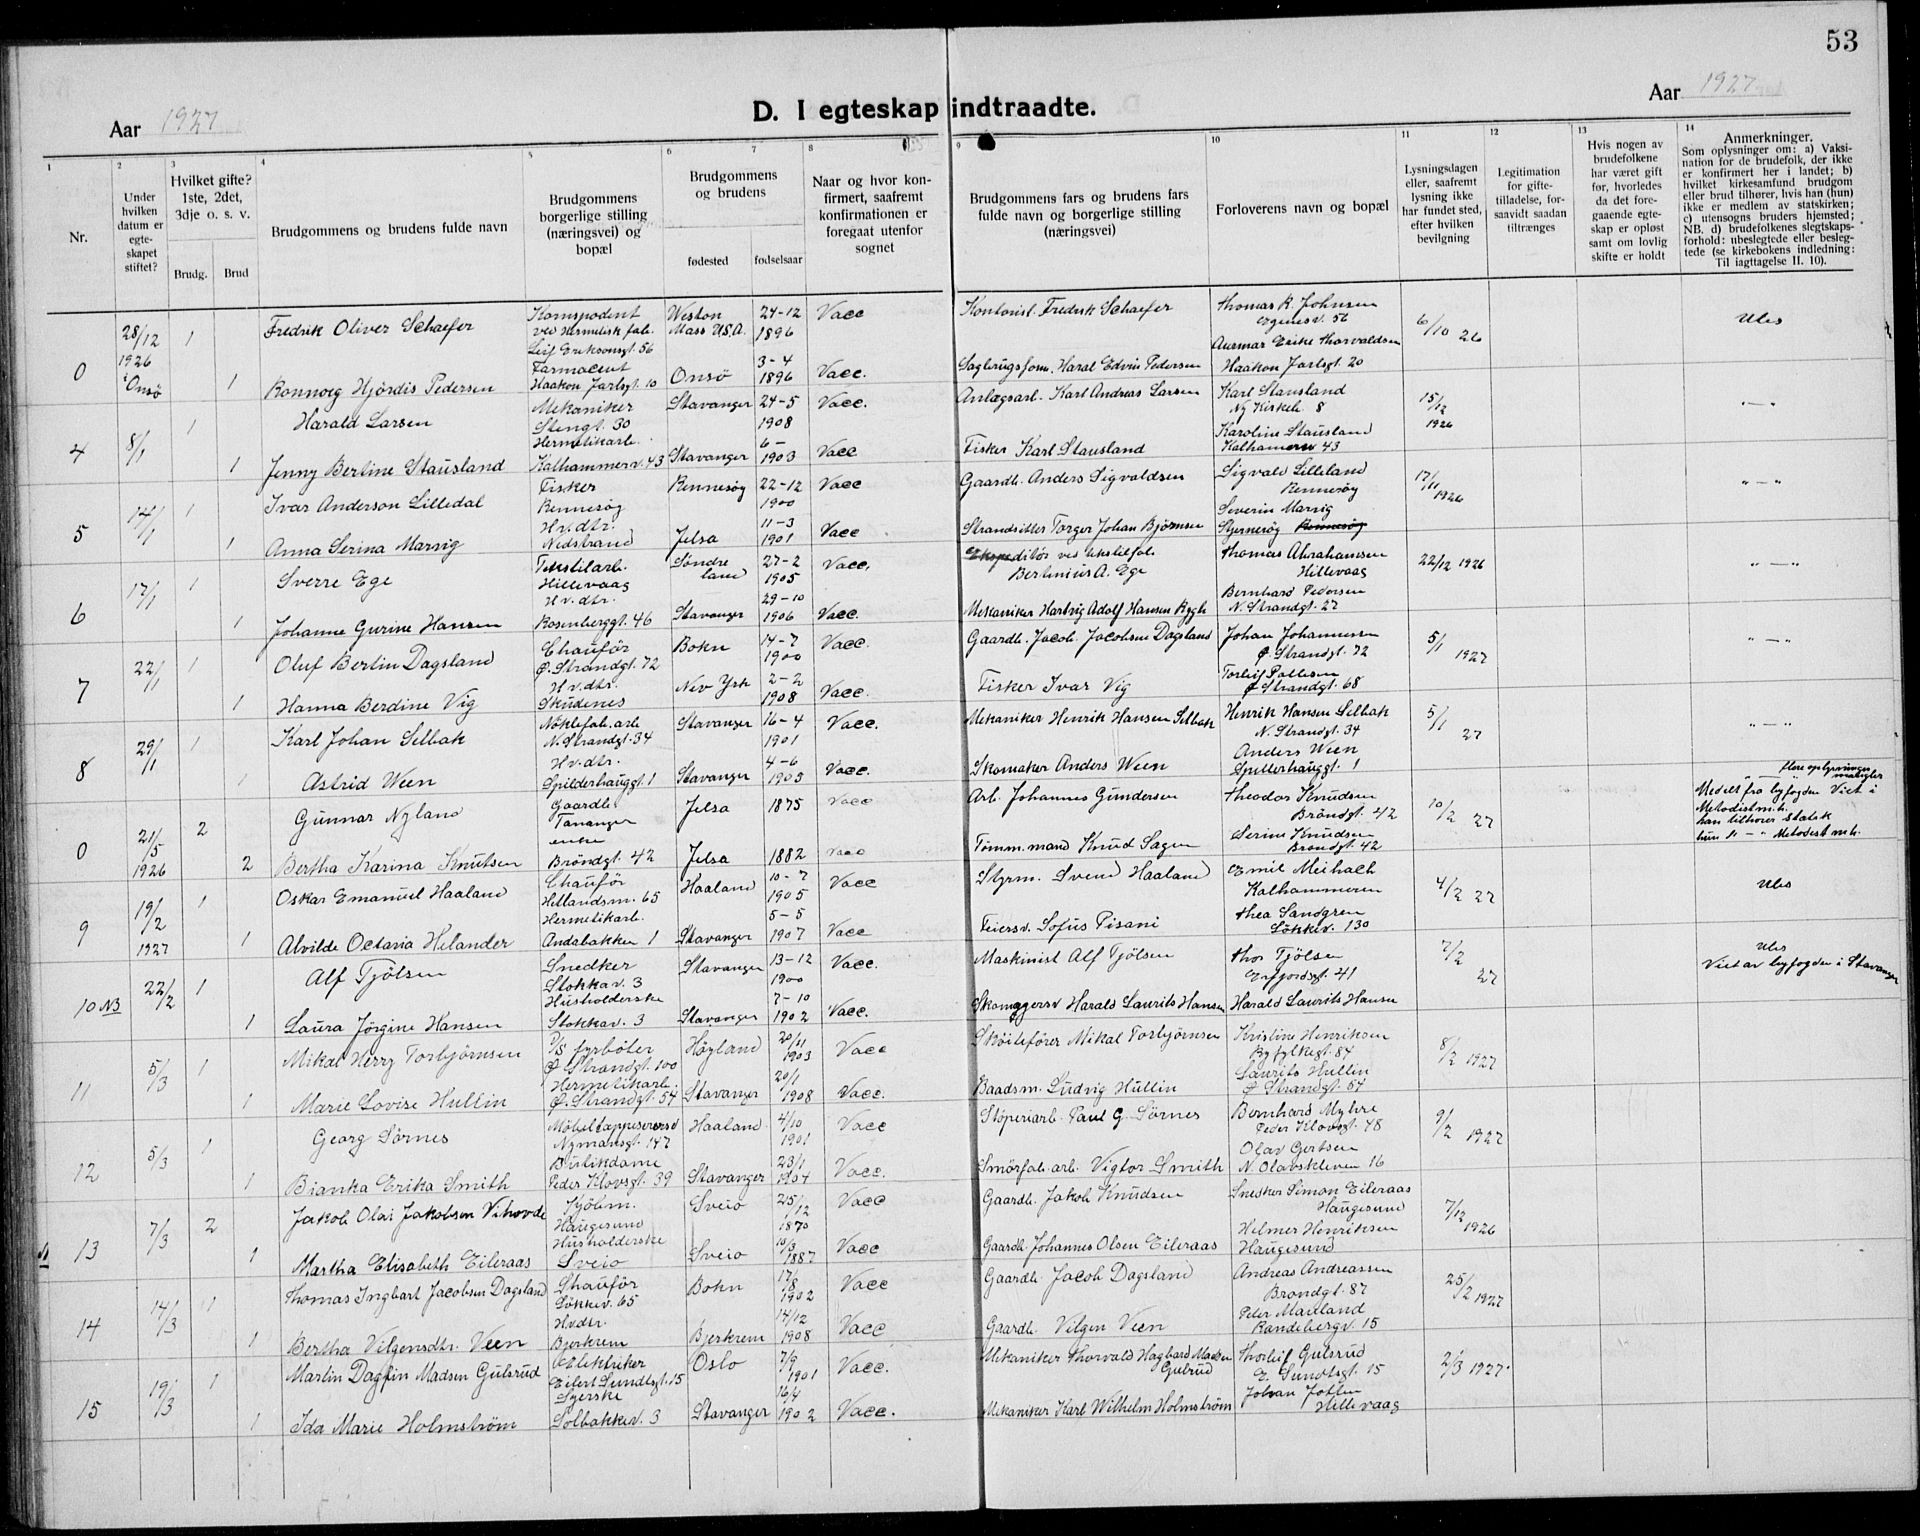 53
Aar 1927
D. I egteskap indtraadte.
Aar 1927
1 2 3 4 5 6 7 8 9 10 11 12 13 14
Nr.
Under hvilken datum er egteskapet stiftet?
Hvilket gifte? 1ste, 2det, 3dje o. s. v.
Brudg. Brud
Brudgommens og brudens fulde navn
Brudgommens borgerlige stilling (næringsvei) og bopæl
Brudgommens og brudens
fødested fødselsaar
Naar og hvor konfirmert, saafremt konfirmationen er foregaat utenfor sognet
Brudgommens fars og brudens fars fulde navn og borgerlige stilling (næringsvei)
Forloverens navn og bopæl
Lysningsdagen eller, saafremt lysning ikke har fundet sted, efter hvilken bevilgning
Legitimation for giftetilladelse, forsaavidt saadan tiltrænges
Hvis nogen av brudefolkene har været gift før, hvorledes da det foregaaende egteskap er opløst samt om lovlig skifte er holdt
Anmerkninger.
Som oplysninger om: a) Vaksination for de brudefolk, der ikke er konfirmert her i landet; b) hvilket kirkesamfund brudgom eller brud tilhører, hvis han (hun) ikke er medlem av statskirken; c) utensogns bruders hjemsted; NB. d) brudefolkenes slegtskapsforhold: ubeslegtede eller beslegtede (se kirkebokens indledning: Til iagttagelse II. 10).
0 28/12 1926 i Onsø
1 Fredrik Oliver Schaefer Korrespodent ved Hermetisk fab. Leif Eriksonsgt. 56 Weston Mass U.S.A. 24-12 1896 Vacc Kontorist. Fredrik Schaefer Thomas R. Johnsen Egenesv. 56 6/10 26 Ubs
1 Ronnoeg Hjördis Pedersen Farmaceut Haakon Jarlsgt. 10 Onsö 3-4 1896 Vacc. Sagbrugsform. Haral Edvin Pedersen Aurmar Erike Thorvaldsen Haakon Jarlsgt. 20
4 8/1
1 Harald Larsen Mekaniker Stengt. 30 Stavanger 24-5 1908 Vacc. Anlægsarb. Karl Andreas Larsen Karl Stausland Ny Kirkeb. 8 15/12 1926 " — "
1 Jenny Bertine Stausland Hermetikarb. Kalhammerv. 43 Stavanger 6- 1903 Vacc Fisker Karl Stausland Karoline Stausland Kalhamerv 43
5 14/1
1 Ivar Anderson Lilledal Fisker Rennesøg Rennesøg 22-12 1900 Vacc Gaardb. Anders Sigvaldsen Sigvald Lilleland Rennesøg 17/11 1926 " — "
1 Anna Serina Marvig Hv. dtr. Nedstrand Jelsa 11-3 1901 Vacc Strandsitter Torger Johan Bjørnsen Severin Marvig Stjernerøg Rennesøg
6 17/1
1 Sverre Ege Tekstilarb. Hillevaag Søndre land 27-2 1905 Vacc. Ekspeditör ved tekstilfab. Bertinius A. Ege Thomas Abrahamsen Hillevaag 22/12 1926 " — "
1 Johanne Gurine Hansen Hv. dtr. Rosenberggt. 46 Stavanger 29-10 1906 Vacc. Mekaniker Hartvig Adolf Hansen Rygh Bernhard Pedersen N. Strandgt. 27
7 22/1
1 Oluf Bertin Dagsland Chauför Ø. Strandgt. 72 Bokn 14-7 1900 Vacc. Gaardb. Jacob Jacobsen Dagsland Johan Johannesen Ø. Strandgt. 72 5/1 1927 " — "
1 Hanna Berdine Vig Hv. dtr. Skudenes Nev Yrk 2-2 1908 Vacc. Fisker Ivar Vig Torleif Pallesen Ø Strandgt. 68
8 29/1
1 Karl Johan Selbak Nöklefab. arb N. Strandgt. 34 Stavanger 16-4 1901 Vacc. Mekaniker Henrik Hansen Selbak Henrik Hansen Selbak N. Strandgt. 34 5/1 27 " — "
1 Astrid Ween Hv. dtr. Spilderhauggt. 1 Stavanger 4-6 1903 Vacc. Skomaker Anders Ween Anders Ween Spilderhauggt. 1
0 21/5 1926
2 Gunnar Nyland Gaardb Tananger Jelsa 1875 Vacc Arb. Johannes Gundersen Theodor Knudsen Bröndgt. 42 10/2 27 flere oplysninger mangler Medelt fra byfogden Viet i Metodistm.h. han tilhører statsk hun " — " Metodistm.h.
2 Bertha Karina Knutsen enke Bröndgt. 42 Jelsa 1882 Vacc Tömm.mand Knud Sagen Serine Knudsen Bröndgt. 42
9 19/2 1927
1 Oskar Emanuel Haaland Chauför Hetlandsm. 65 Haaland 10-7 1905 Vacc Styrm. Svend Haaland Emil Meihach Kalhammeren 4/2 27 Ubs
1 Alvilde Octavia Helander Hermetikarb. Andabakken 1 Stavanger 5-5 1907 Vacc Feiersv. Sofus Pisani Thea Sandgren Løkkev. 130
10 N3 22/2
1 Alf Tjölsen Snedker Stokkav. 3 Stavanger 13-12 1900 Vacc. Maskinist Alf Tjölsen Thor Tjölsen Erfjordsgt. 41 7/2 27 Ubs Viet av byfogden i Stavanger
1 Laura Jörgine Hansen Husholderske Stokkav. 3 Stavanger 7-10 1902 Vacc. Skomagersv Harald Laurits Hansen Harald Laurits Hansen
11 5/3
1 Mikal Herry Torbjørnsen D/S fyrböter Ø Strandgt. 100 Høyland 20/11 1903 Vacc Skøitefører Mikal Torbjørnsen Kristine Henriksen Ryfylkegt. 84 8/2 1927
1 Marie Lovise Hullin Hermetikarb. Ø. Strandgt. 54 Stavanger 20/1 1908 Vacc. Baadsm. Ludvig Hullin Laurits Hullin Ø Strandgt. 54
12 5/3
1 Georg Sörnes Möbeltappesersv Nymansgt. 147 Haaland 4/10 1901 Vacc Stöperiarb. Paul G. Sörnes Bernhard Myhre Peder Klowsgt. 78 9/2 1927
1 Bianka Erika Smith Butikdame Peder Klovsgt. 39 Stavanger 23/1 1904 Vacc. Smörfab. arb. Vigtor Smith Olav Gertsen N. Olavskleven 16
13 7/3
2 Jakob Olai Jakobsen Vihovde Kjöbm. Haugesund Sveio 25/12 1870 Vacc Gaardb. Jakob Knudsen Snedker Simon Eileraas Haugesund 7/12 1926
1 Martha Elisabeth Eileraas Husholderske Sveio Sveio 15/3 1887 Vacc Gaardb. Johannes Olsen Eileraas Helmer Henriksen Haugesund
14 14/3
1 Thomas Ingbart Jacobsen Dagsland Shauför Løkkev. 65 Bokn 17/8 1902 Vacc Gaardb. Jacob Dagsland Andreas Andreassen Brondgt. 87 25/2 1927
1 Bertha Vilgensdtr. Veen Hvdtr. Bjerkrem Bjerkrem 14/12 1908 Vacc Gaardb. Vilgen Veen Peter Mauland Randebergv. 15
15 19/3
1 Martin Dagfin Madsen Gulsrud Elektriker Eilert Sundtsgt. 15 Oslo 7/9 1901 Vacc. Mekaniker Thorvald Hagbard Madsen Gulrud Thorleif Gulsrud E. Sundtsgt. 15 2/3 1927.
1 Ida Marie Holmström Syerske Solbakkev. 3 Stavanger 16/4 1902 Vacc. Mekaniker Karl Wilhelm Holmström Johan Jotten Hillevaag